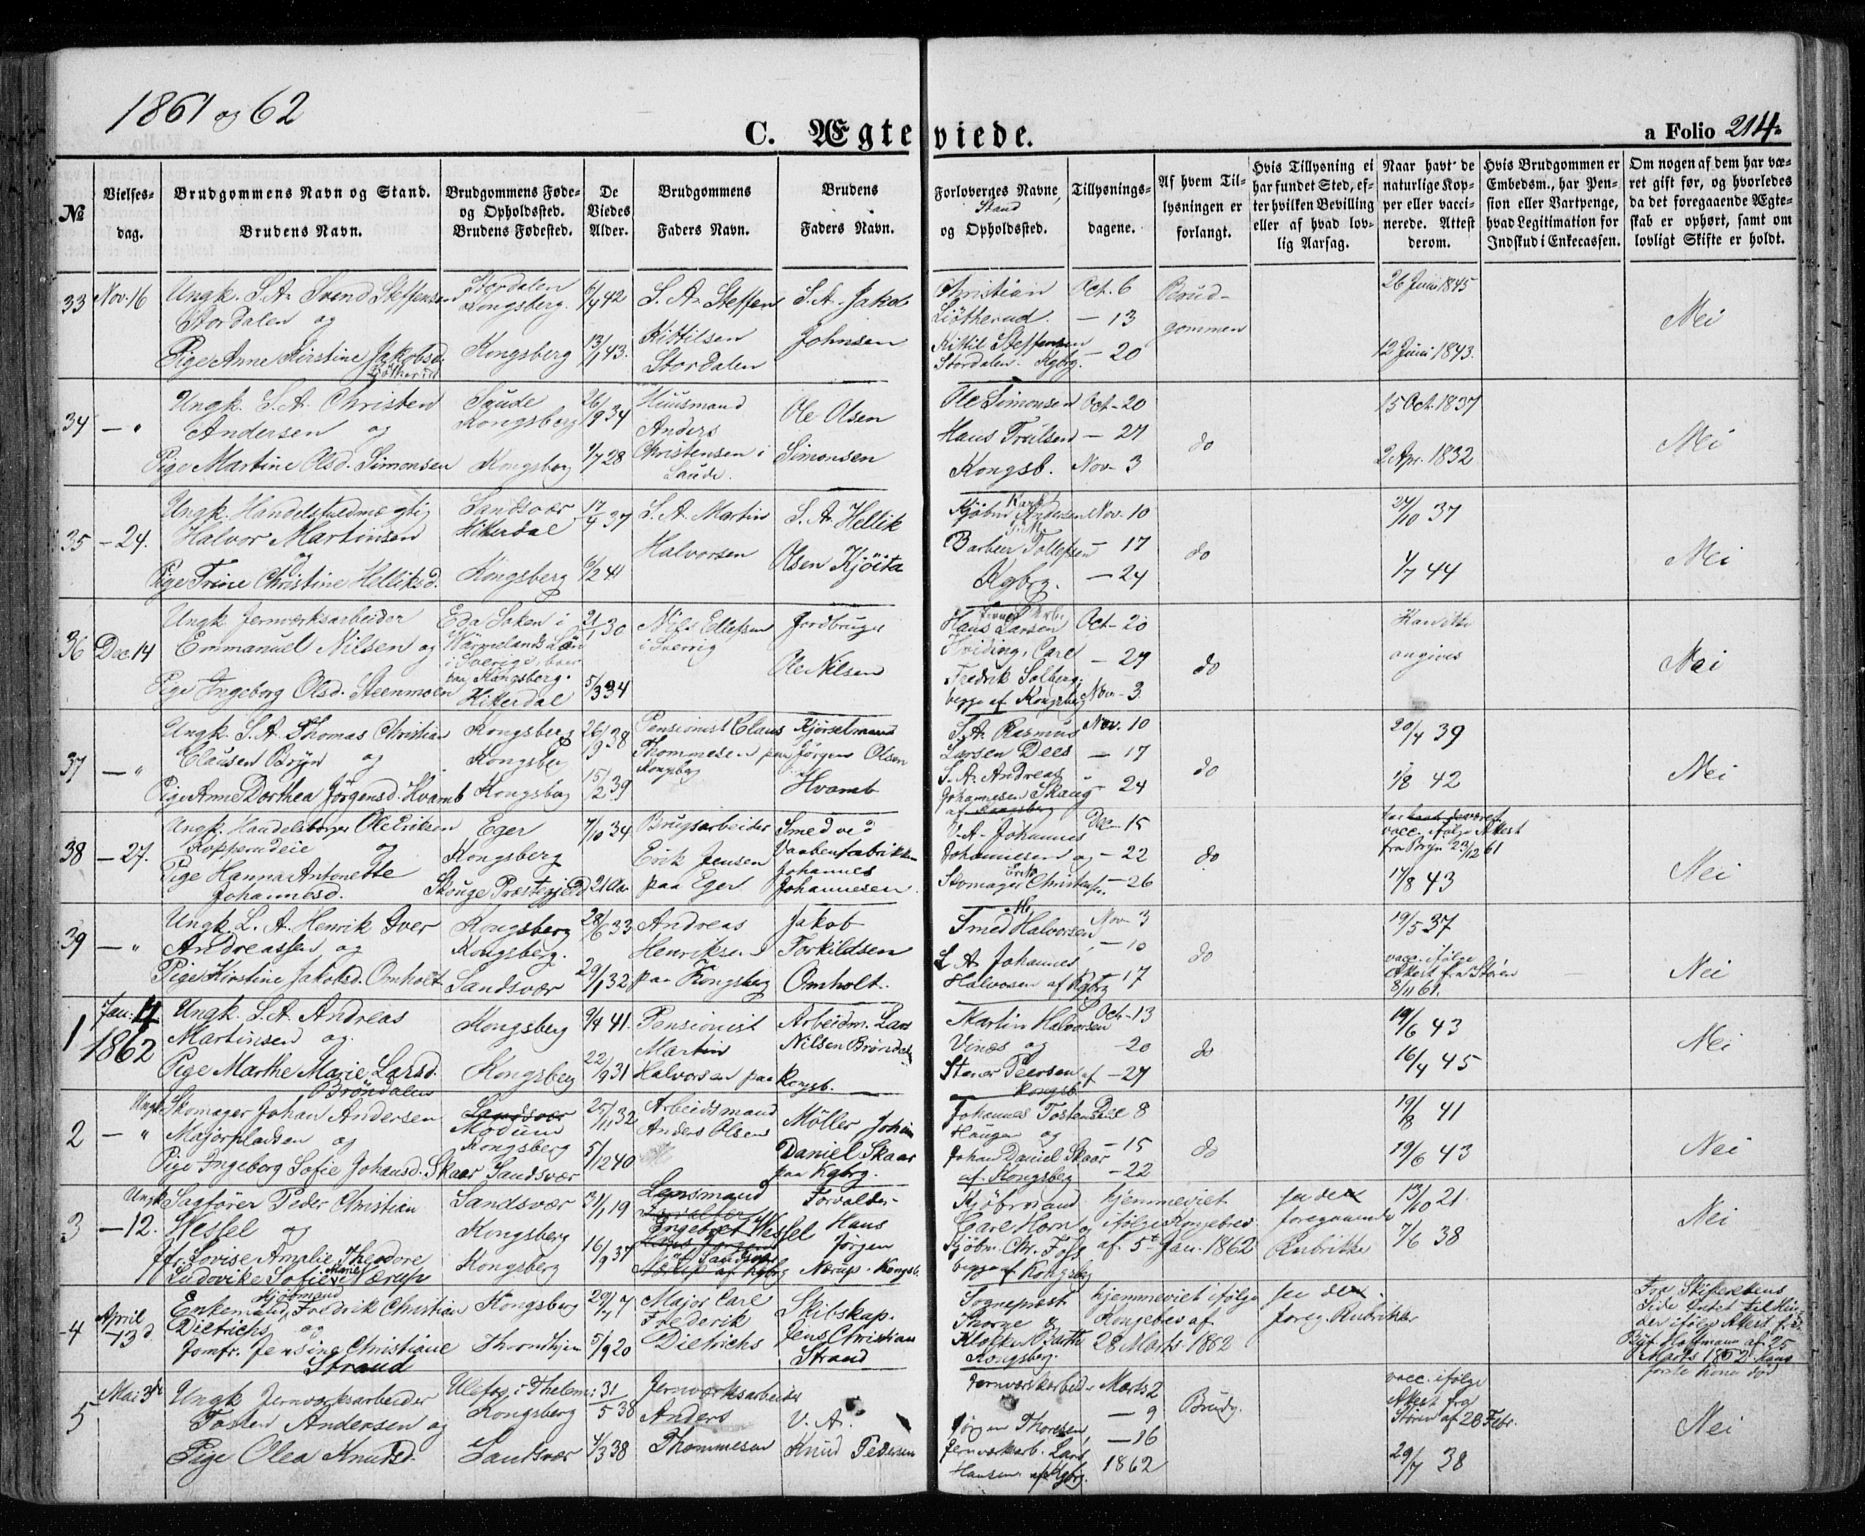 1861 og 62
C. Ægteviede.
a Folio 214.
№
Vielsesdag.
Brudgommens Navn og Stand.
Brudens Navn.
Brudgommens Føde- og Opholdssted.
Brudens Fødested.
De Viedes Alder.
Brudgommens Faders Navn.
Brudens Faders Navn.
Forloverges Navne, Stand og Opholdssted.
Tillysningsdagene.
Af hvem Tillysningen er forlangt.
Hvis Tillysning ei har fundet Sted, efter hvilken Bevilling eller af hvad lovlig Aarsag.
Naar havt de naturlige Kopper eller vaccinerede. Attest derom.
Hvis Brudgommen er Embedsm., har Pension eller Vartpenge, hvad Legitimation for Indskud i Enkecassen.
Om nogen af dem har været gift før, og hvorledes da det foregaaende Ægteskab er ophørt, samt om lovligt Skifte er holdt.
33 Nov. 16 Ungk. S. A. Svend Steffensen Stordalen og
Stordalen Kongsberg 42 S. A. Steffen Kittilsen Stordalen S. A. Jakob Johnsen
Pige Anne Kirstine Jakobsd. Kongsberg 13/1 43.
Christian Kittil Steffensen Stordalen. Kgbrg. Oct. 6 — 13 — 20 Brudgommen 26 Juni 1845 12 Juni 1843. Nei
34 — " Ungk. S. A. Christen Andersen og
Saude Kongsberg 26/9 34 Huusmand Anders Christensen i Saude. Ole Olsen Simonsen
Pige Martine Olsd. Simonsen Kongsberg 28
Ole Simonsen Hans Kongsb. Oct. 20 — 27 Nov. 3 do 15 Oct. 1837 2 Apr. 1832 Nei
35 — 24. Ungk. Handelsfuldmægtig Halvor Martinsen og
Sandsvær Hitterdal 17/4 37 S. A. Martin Halvorsen S. A. Hellik Olsen
Pige Trine Christine Helliksd. Kongsberg 6/2 41
Andersen Tollefsen Kgbrg. Nov. 10 — 17 — 24 do 24/10 37 4/7 44 Nei
36 Dec. 14 Ungk. Jernværksarbeider Emmanuel Nilsen og
Eda Soken i Wärmelands Län i Sverige, boer paa Kongsberg. 21/1 30 Nils i Sverrig Jordbruger Ole Nilsen
Pige Ingeborg Olsd. Steenmoen Hitterdal 5/3 34
Hans Larsen Hviding, Carl Fredrik Solberg, begge af Kongsberg Oct. 20 — 27 Nov. 3 do angives Nei
37 — " Ungk. S. A. Thomas Christian Clausen Bryn og
Kongsberg Kongsberg 26/9 38 Pensionist Claus Thommesen paa Kongsberg Kjørselmand Jørgen Olsen Hvamb
Pige Anne Dorthea Jørgensd. Hvamb Kongsberg 15/2 39
S. A. Rasmus Larsen Dees S. A. Andreas Johannesen Skaug af Kongsberg Nov. 10 — 17 — 24 do 20/4 39 1/8 42 Nei
38 — 27. Ungk. Handelsborger Ole Eriksen og
Eger Kongsberg 7/10 34 Brugsarbeider Erik Jensen paa Eger Smed ved Vaabenfabrikken Johannes Johannesen.
Pige Hanna Antonette Johannesd. Præstegjeld 21 Aar
V. A. Johannes Johannesen og Skomager Dec. 15 — 22 — 26 do vacc. ifølge Attest fra Bryn 23/12 61 17/8 43 Nei
39 — " Ungk. L. A. Henrik Iver Andreassen og
Kongsberg Kongsberg. 28/6 33 Andreas Henriksen paa Kongsberg Jakob Torkildsen Omholt.
Pige Kirstine Jakobsd. Omholt Sandsvær 29/1 32
Smed Halvorsen L. A. Johannes Halvorsen af Kgbrg Nov. 3 — 10 — 17 do 19/5 37 vacc. ifølge Attest fra Støren 8/11 61. Nei
1 Jan. 4 1862 Ungk. S. A. Andreas Martinsen og
Kongsberg 9/4 41. Pensionist Martin Halvorsen paa Kongsb. Arbeidm. Lars Nilsen Brøndal
Pige Marthe Marie Larsd. Brøndalen Kongsberg 22/9 31
Martin Halvorsen Vinæs og Stener Peersen af Kongsb. Oct. 13 — 20 — 27 do 19/6 43 16/4 45 Nei
2 — " Ungk. Skomager Johan Andersen Majorpladsen og
Sandsvær Modum Kongsberg 25/11 32 Arbeidsmand Anders Olsen Møller Johan Daniel Skaar paa Kgbrg.
Pige Ingeborg Sofie Johansd. Skaar Sandsvær 5/12 40
Johannes Tostensen Haugen og Johan Daniel Skaar af Kongsberg Dec. 8 — 15 — 22 do 19/8 41 19/6 43 Nei
3 — 12. Ungk. Sagfører Peder Christian Wessel og
Sandsvær Kongsberg 3/1 19 Lensmand Engebret Wessel i Sandsvær Forvalder Hans Jørgen Nærup. Kongsb.
Lovise Amalie Theodore Ludovike Sofie Marie Nærup Kongsberg 16/9 37
Kjøbmand Carl Horn og Kjøbm. Chr. Foss begge af Kongsberg hjemmeviet ifølge Kongebrev af 5te Jan. 1862 see den foregaaende Rubrikke 13/10 21. 7/6 38 Nei
4 April 13d Enkemand, Kjøbmand Fredrik Christian Dietrichs og
Kongsberg 29/7 7 Major Carl Frederik Dietrichs Skibskap. Jens Christian Strand
Jomfr. Jensine Christiane Strand Thornhjem 5/9 20
Sognepræst Thorne & Klokker Barth Kongsberg. hjemmeviet ifølge Kongebrev af 28 Marts 1862 see den foreg. Rubrikke Fra Stifterettens Side Intet til Hinder ifølge Attest fra Marts 1862. Hans første Kone død
5 Mai 3de Ungk. Jernværksarbeider Tosten Andersen og
Ulefos i Thelem. Kongsberg 31/5 38 Jernværksarbeider Anders Thommesen V. A. Knud Pedersen
Pige Olea Knudsd. Sandsvær 4/3 38
Jernværksarbeid. Jørgen Thoresen, Jernværksarb. Lars Hansen af Kgbrg. Marts 2 — 9 — 16 1862 Brudg. vacc. ifølge Attest fra Støren af 28 Febr. 29/7 38 Nei